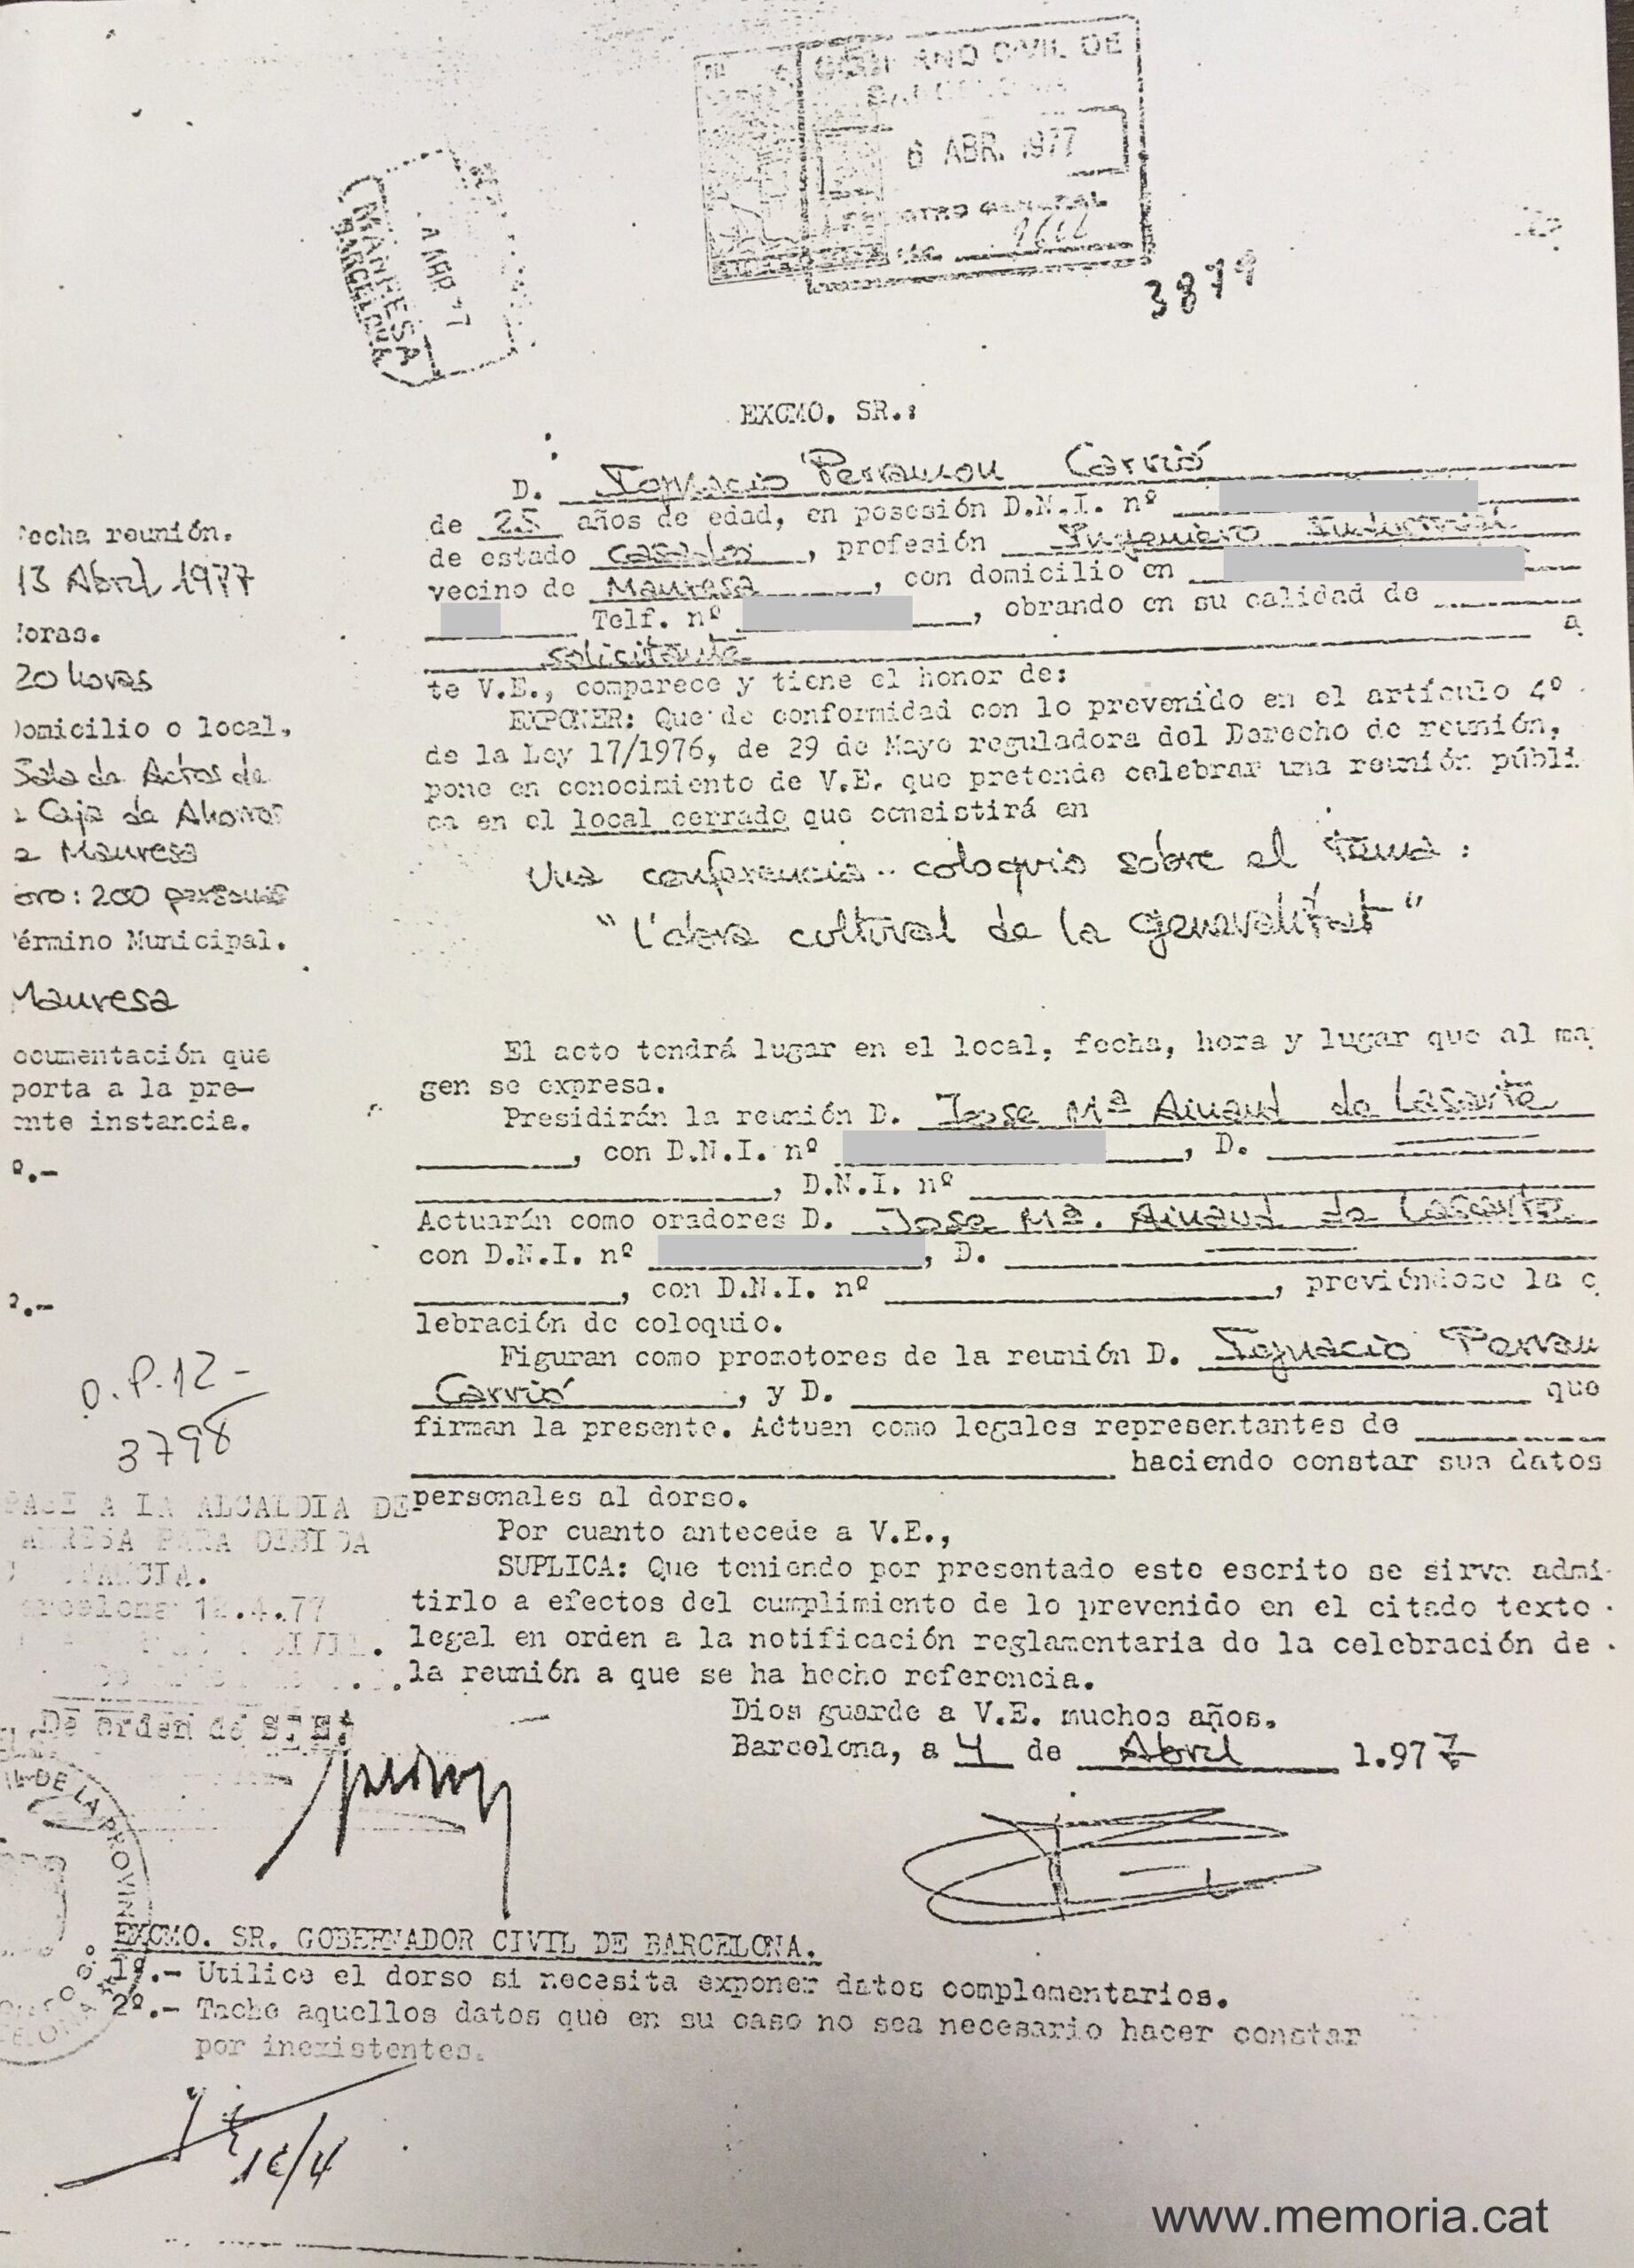 GOBIERNO CIVIL DE
BARCELONA
6 ABR. 1977
REGISTRO GENERAL
MANRESA
BARCELONA
3879
EXCMO. SR.:
D. Ignacio Perramon Carrió
de 25 años de edad, en posesión D.N.I. nº
de estado casado, profesión Ingeniero Industrial
vecino de Manresa, con domicilio en
Telf. nº , obrando en su calidad de
solicitante a
te V.E., comparece y tiene el honor de:
EXPONER: Que de conformidad con lo prevenido en el artículo 4º
de la Ley 17/1976, de 29 de Mayo reguladora del Derecho de reunión,
pone en conocimiento de V.E. que pretende celebrar una reunión públi
ca en el local cerrado que consistirá en
Una conferencia-coloquio sobre el tema:
"L'obra cultural de la generalitat"
echa reunión.
13 Abril 1977
oras.
20 horas
omicilio o local.
Sala de Actos de
Caja de Ahorros
Manresa
oro: 200 personas
érmino Municipal.
Manresa
ocumentación que
porta a la pre-
ente instancia.
º.-
º.-
El acto tendrá lugar en el local, fecha, hora y lugar que al ma
gen se expresa.
Presidirán la reunión D. Jose Mª Ainaud de Lasarte
, con D.N.I. nº , D.
, D.N.I. nº
Actuarán como oradores D. Jose Mª. Ainaud de Lasarte
con D.N.I. nº , D.
, con D.N.I. nº , previéndose la c
lebración de coloquio.
Figuran como promotores de la reunión D. Ignacio Perram
Carrió, y D. que
firman la presente. Actuan como legales representantes de
haciendo constar sus datos
personales al dorso.
Por cuanto antecede a V.E.,
SUPLICA: Que teniendo por presentado este escrito se sirva admi-
tirlo a efectos del cumplimiento de lo prevenido en el citado texto
legal en orden a la notificación reglamentaria de la celebración de
la reunión a que se ha hecho referencia.
Dios guarde a V.E. muchos años.
Barcelona, a 4 de Abril 1.977
O.P.12-
3798
PASE A LA ALCALDIA DE
ANRESA PARA DEBIDA
arcelona 12.4.77
De orden de S.E.
IL DE LA PROVIN
EXCMO. SR. GOBERNADOR CIVIL DE BARCELONA.
1º.- Utilice el dorso si necesita exponer datos complementarios.
2º.- Tache aquellos datos que en su caso no sea necesario hacer constar
por inexistentes.
16/4
www.memoria.cat